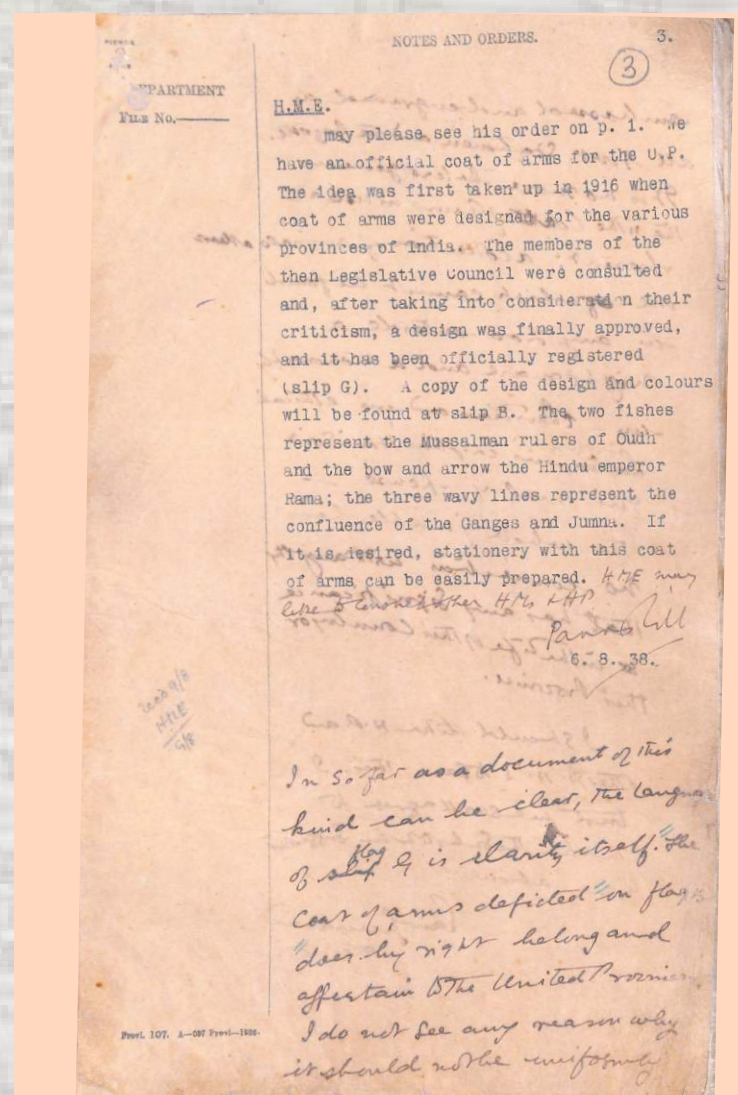 NOTES AND ORDERS.
3.
3
DEPARTMENT
FILE No.
H.M.E.
may please see his order on p. 1. We
have an official coat of arms for the U.P.
The idea was first taken up in 1916 when
coat of arms were designed for the various
provinces of India. The members of the
then Legislative Council were consulted
and, after taking into considerati n their
criticism, a design was finally approved,
and it has been officially registered
(slip G). A copy of the design and colours
will be found at slip B. The two fishes
represent the Mussalman rulers of Oudh
and the bow and arrow the Hindu emperor
Rama; the three wavy lines represent the
confluence of the Ganges and Jumna. If
it is desired, stationery with this coat
of arms can be easily prepared. HME may
like to consult other HMs & HP
6. 8. 38.
HME
9/8
In so far as a document of this
kind can be clear, the language
of flag G is clarity itself. "The
coat of arms depicted" on flag
"does by right belong and
appertain to the United Provinces
I do not see any reason why
it should not be uniformly